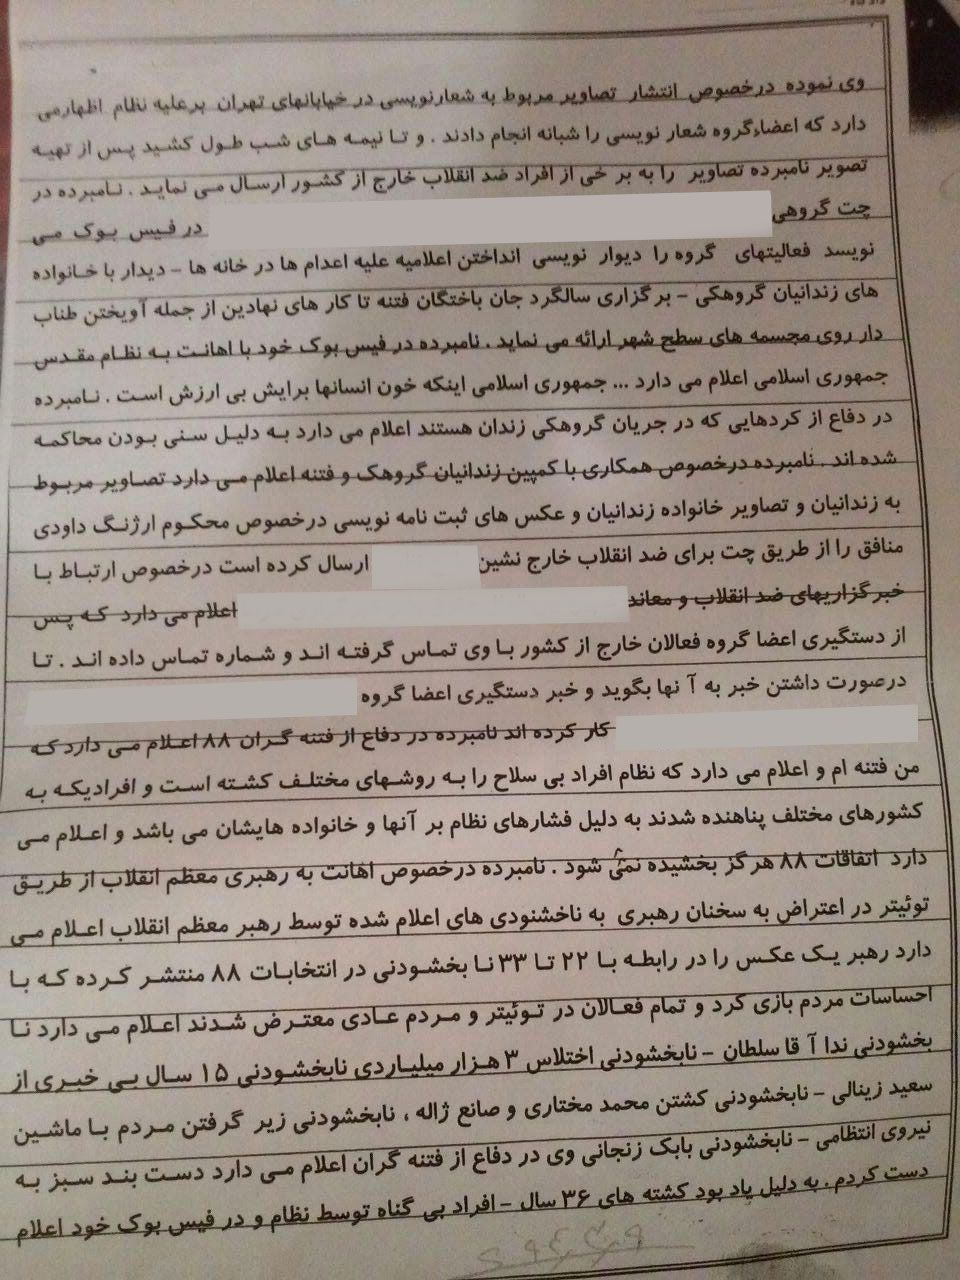 وی نموده درخصوص انتشار تصاویر مربوط به شعارنویسی در خیابانهای تهران برعلیه نظام اظهارمی
دارد که اعضاءگروه شعار نویسی را شبانه انجام دادند . و تا نیمه های شب طول کشید پس از تهیه
تصویر نامبرده تصاویر را به بر خی از افراد ضد انقلاب خارج از کشور ارسال می نماید . نامبرده در
چت گروهی در فیس بوک می
نویسد فعالیتهای گروه را دیوار نویسی انداختن اعلامیه علیه اعدام ها در خانه ها - دیدار با خانواده
های زندانیان گروهکی - برگزاری سالگرد جان باختگان فتنه تا کار های نهادین از جمله آویختن طناب
دار روی مجسمه های سطح شهر ارائه می نماید . نامبرده در فیس بوک خود با اهانت به نظام مقدس
جمهوری اسلامی اعلام می دارد ... جمهوری اسلامی اینکه خون انسانها برایش بی ارزش است . نامبرده
در دفاع از کردهایی که در جریان گروهکی زندان هستند اعلام می دارد به دلیل سنی بودن محاکمه
شده اند . نامبرده درخصوص همکاری با کمپین زندانیان گروهک و فتنه اعلام می دارد تصاویر مربوط
به زندانیان و تصاویر خانواده زندانیان و عکس های ثبت نامه نویسی درخصوص محکوم ارژنگ داودی
منافق را از طریق چت برای ضد انقلاب خارج نشین ارسال کرده است درخصوص ارتباط با
خبرگزاریهای ضد انقلاب و معاند اعلام می دارد که پس
از دستگیری اعضا گروه فعالان خارج از کشور با وی تماس گرفته اند و شماره تماس داده اند . تا
درصورت داشتن خبر به آ نها بگوید و خبر دستگیری اعضا گروه
کار کرده اند نامبرده در دفاع از فتنه گران ۸۸ اعلام می دارد که
من فتنه ام و اعلام می دارد که نظام افراد بی سلاح را به روشهای مختلف کشته است و افرادیکه به
کشورهای مختلف پناهنده شدند به دلیل فشارهای نظام بر آنها و خانواده هایشان می باشد و اعلام می
دارد اتفاقات ۸۸ هرگز بخشیده نمی شود . نامبرده درخصوص اهانت به رهبری معظم انقلاب از طریق
توئیتر در اعتراض به سخنان رهبری به ناخشنودی های اعلام شده توسط رهبر معظم انقلاب اعلام می
دارد رهبر یک عکس را در رابطه با ۲۲ تا ۳۳ نا بخشودنی در انتخابات ۸۸ منتشر کرده که با
احساسات مردم بازی کرد و تمام فعالان در توئیتر و مردم عادی معترض شدند اعلام می دارد نا
بخشودنی ندا آ قا سلطان - نابخشودنی اختلاس ۳ هزار میلیاردی نابخشودنی ۱۵ سال بی خبری از
سعید زینالی - نابخشودنی کشتن محمد مختاری و صانع ژاله ، نابخشودنی زیر گرفتن مردم با ماشین
نیروی انتظامی - نابخشودنی بابک زنجانی وی در دفاع از فتنه گران اعلام می دارد دست بند سبز به
دست کردم . به دلیل یاد بود کشته های ۳۶ سال - افراد بی گناه توسط نظام و در فیس بوک خود اعلام